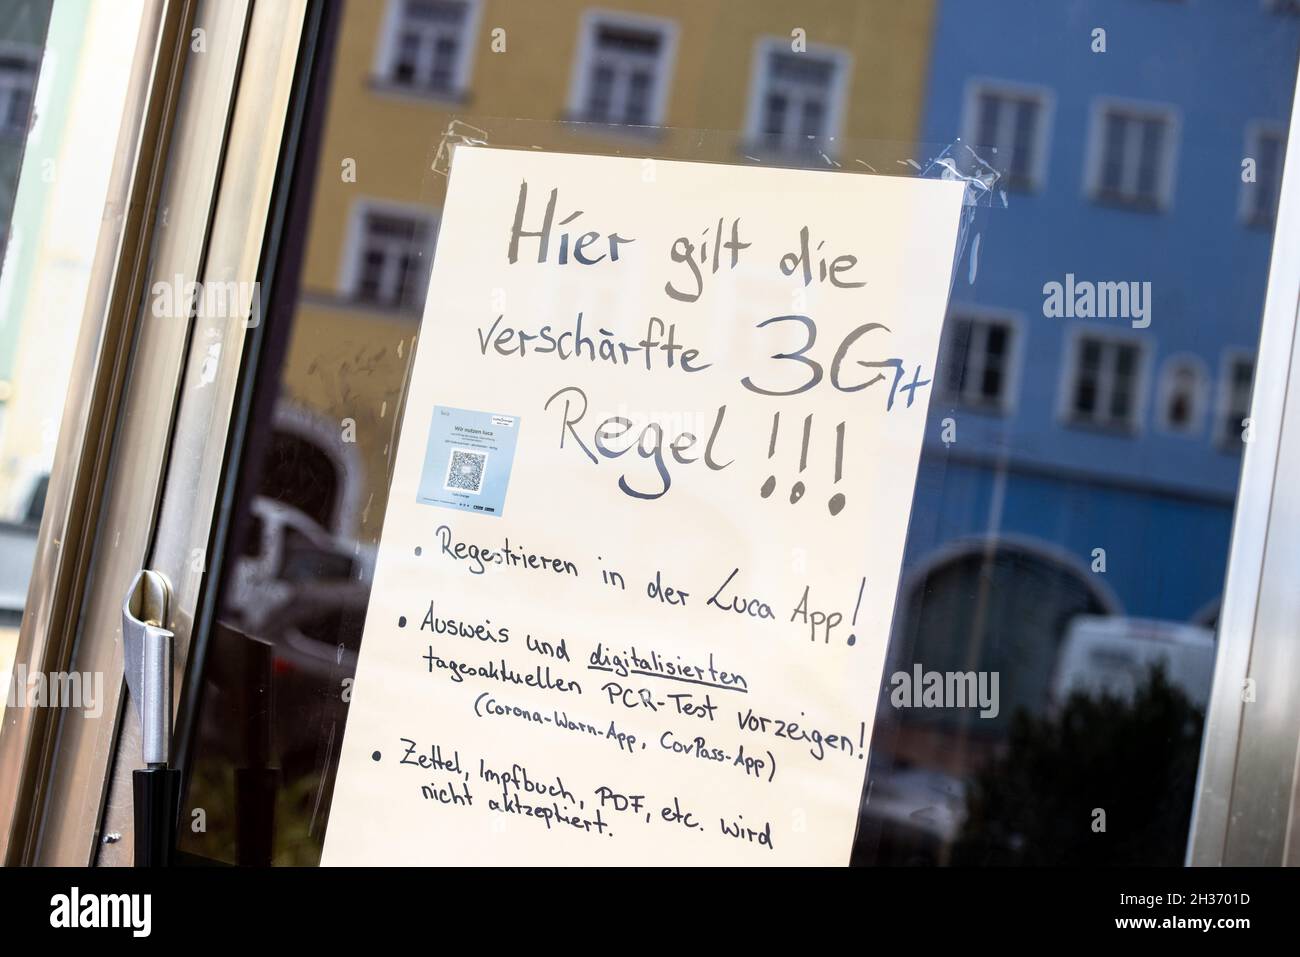 Hier gilt die
verschärfte 3G+
Regel!!!
Wir nutzen luca
• Regestrieren in der Luca App!
• Ausweis und digitalisierten
tagesaktuellen PCR-Test vorzeigen!
(Corona-Warn-App, CovPass-App)
• Zettel, Impfbuch, PDF, etc. wird
nicht aktzeptiert.
alamy
Image ID: 2H3701D
www.alamy.com